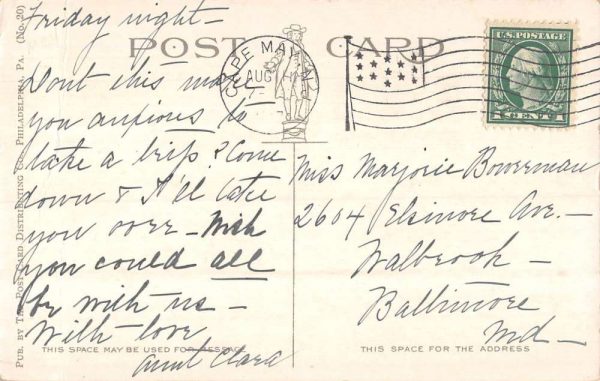 Friday night—
POST CARD
CAPE MAY, N.J.
AUG
U.S. POSTAGE
1 CENT 1
Dont this make
you anxious to
take a trip? Come
down & I'll take
you over— Wish
you could all
be with us—
With love
Aunt Clara
Miss Marjorie Bowerman
2604 Elsinore Ave.—
Walbrook—
Baltimore
Md—
THIS SPACE MAY BE USED FOR MESSAGE
THIS SPACE FOR THE ADDRESS
PUB. BY THE POST CARD DISTRIBUTING CO., PHILADELPHIA, PA. (No. 20)